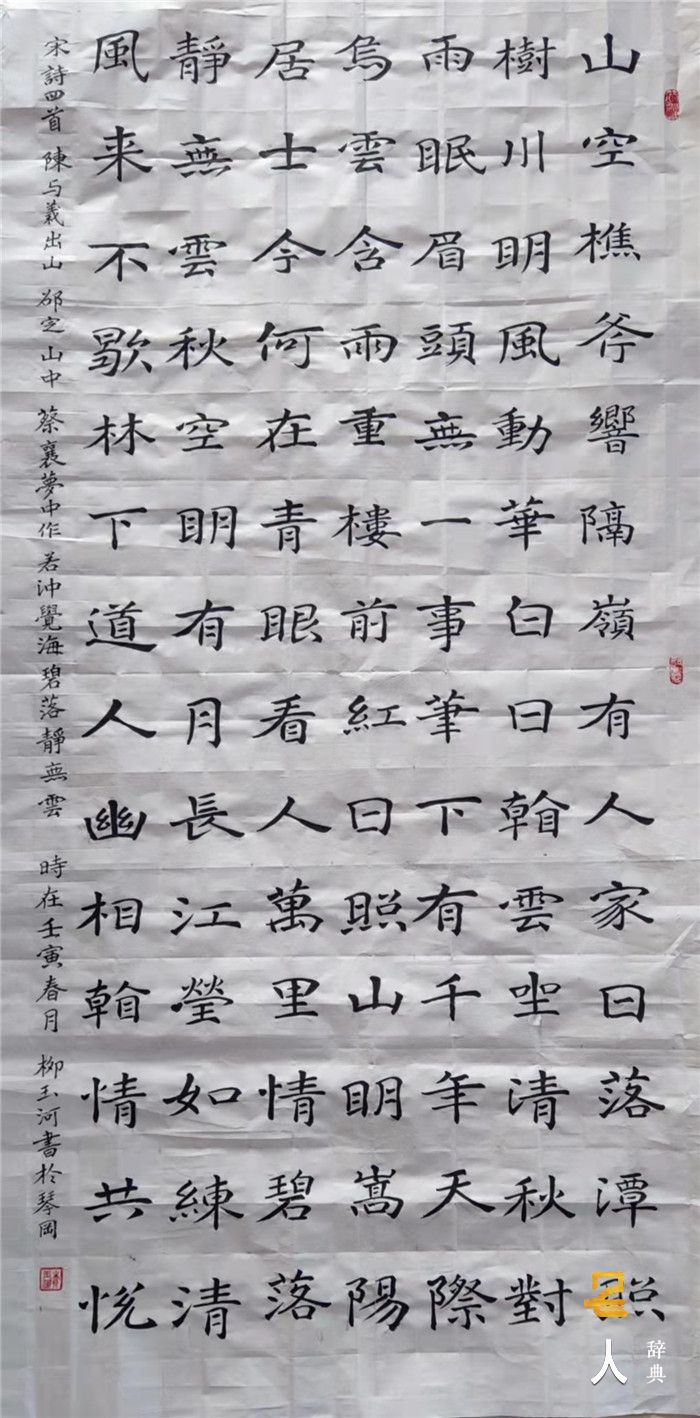 山空樵斧響隔嶺有人家日落潭照
樹川明風動華白日看雲坐清秋對
雨眠眉頭無一事筆下有千年天際
烏雲含雨重樓前紅日照山明嵩陽
居士今何在青眼看人萬里情碧落
靜無雲秋空明有月長江瑩如練清
風来不歇林下道人幽相看情共悦
宋詩四首 陳与義出山 邵定山中 蔡襄夢中作 若沖覺海碧落靜無雲 時在壬寅春月 柳玉河書於琴岡
人
辞典